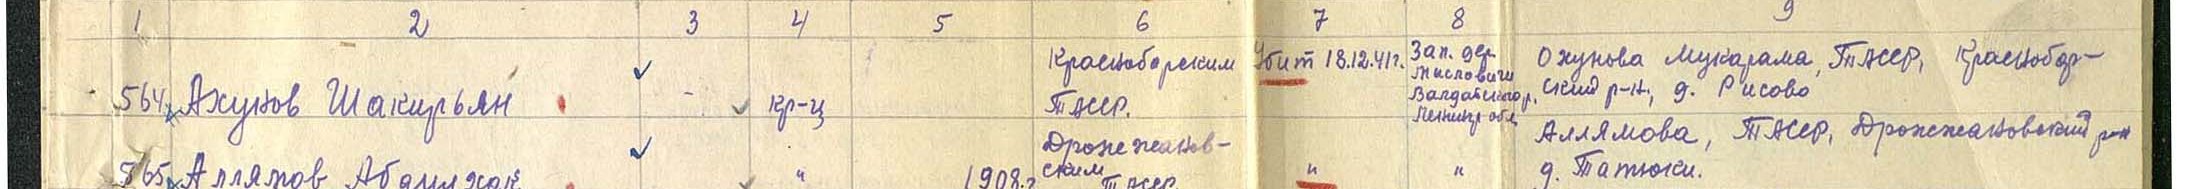 1 2 3 4 5 6 7 8 9
564. Ахунов Шакирьян - кр-ц Красноборским ТАССР. Убит 18.12.41г. Зап. дер. Мысловичи Валдайского р. Ленингр обл Охунова Мукарама, ТАССР, Краснобор-
ский р-н, д. Рисово
565. Аллямов " 1908.г Дрожжанов-
ским ТАССР " " Аллямова, ТАССР, Дрожжановский р-н
д. Татюки.